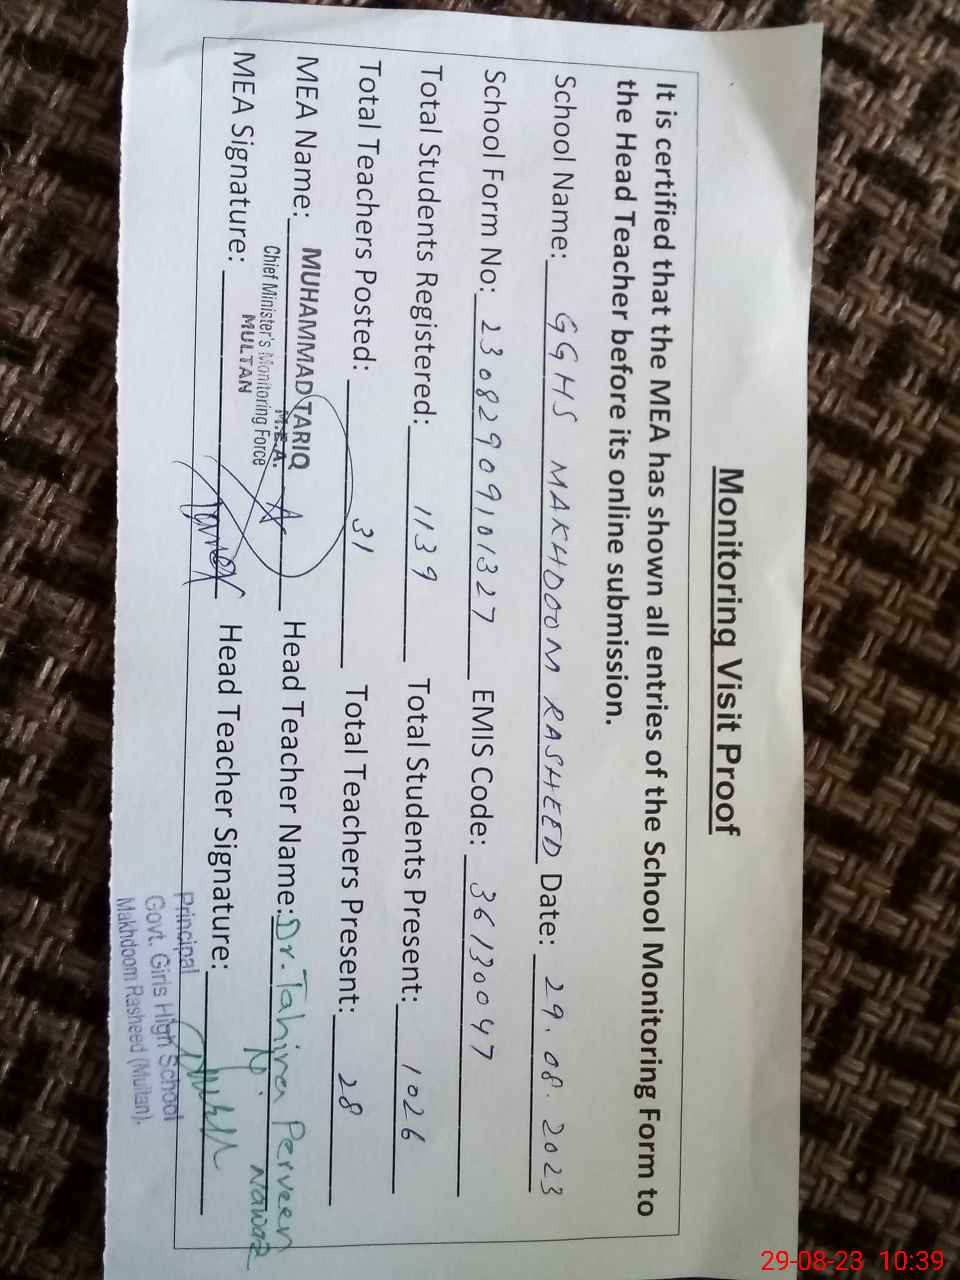 Monitoring Visit Proof
It is certified that the MEA has shown all entries of the School Monitoring Form to
the Head Teacher before its online submission.
School Name: GGHS MAKHDOOM RASHEED Date: 29.08.2023
School Form No: 23082909101327 EMIS Code: 36130047
Total Students Registered: 1139 Total Students Present: 1026
Total Teachers Posted: 31 Total Teachers Present: 28
MEA Name: MUHAMMAD TARIQ Head Teacher Name: Dr. Tahira Perveen
M.E.A. N. Nawaz
Chief Minister's Monitoring Force
MULTAN
MEA Signature: Head Teacher Signature:
Principal
Govt. Girls High School
Makhdoom Rasheed (Multan).
29-08-23 10:39